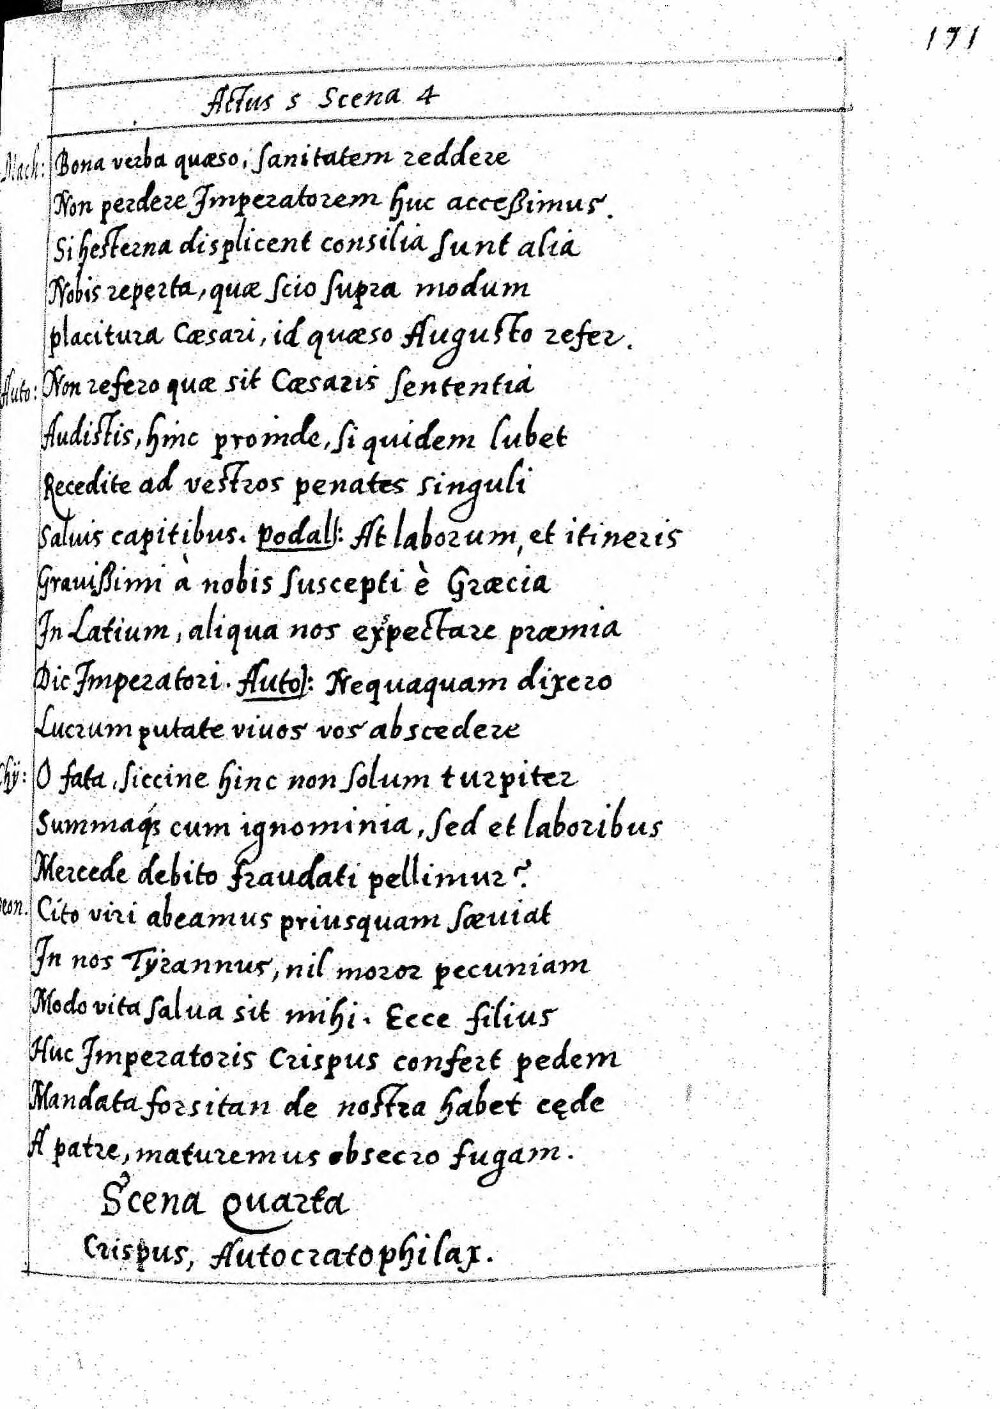 171
Actus 5 Scena 4
Mach: Bona verba quæso, sanitatem reddere
Non perdere Imperatorem huc acceßimus.
Si hesterna displicent consilia sunt alia
Nobis reperta, quæ scio supra modum
placitura Cæsari, id quæso Augusto refer.
Auto: Non refero quæ sit Cæsaris sententia
Audistis, hinc proinde, si quidem lubet
Recedite ad vestros penates singuli
Saluis capitibus. Podal: At laborum, et itineris
Grauißimi à nobis suscepti è Græcia
In Latium, aliqua nos expectare præmia
Dic Imperatori. Auto: Nequaquam dixero
Lucrum putate viuos vos abscedere
Chÿ: O fata, siccine hinc non solum turpiter
Summaq; cum ignominia, sed et laboribus
Mercede debito fraudati pellimur?
eon. Cito viri abeamus priusquam sæuiat
In nos Tÿrannus, nil moror pecuniam
Modo vita salua sit mihi. Ecce filius
Huc Imperatoris Crispus confert pedem
Mandata forsitan de nostra habet cęde
A patre, maturemus obsecro fugam.
Scena Quarta
Crispus, Autocratophilax.